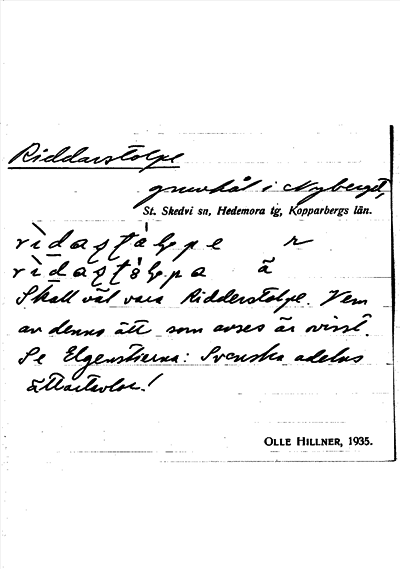 Riddarstolpe
gruvhål i Nyberget,
St. Skedvi sn, Hedemora tg, Kopparbergs län.
rìdastål̥pe r
rìdastål̥pa ä
Skall väl vara Ridderstolpe. Vem
av denna ätt som avses är ovisst.
Se Elgenstierna: Svenska adelns
ättartavlor!
OLLE HILLNER, 1935.